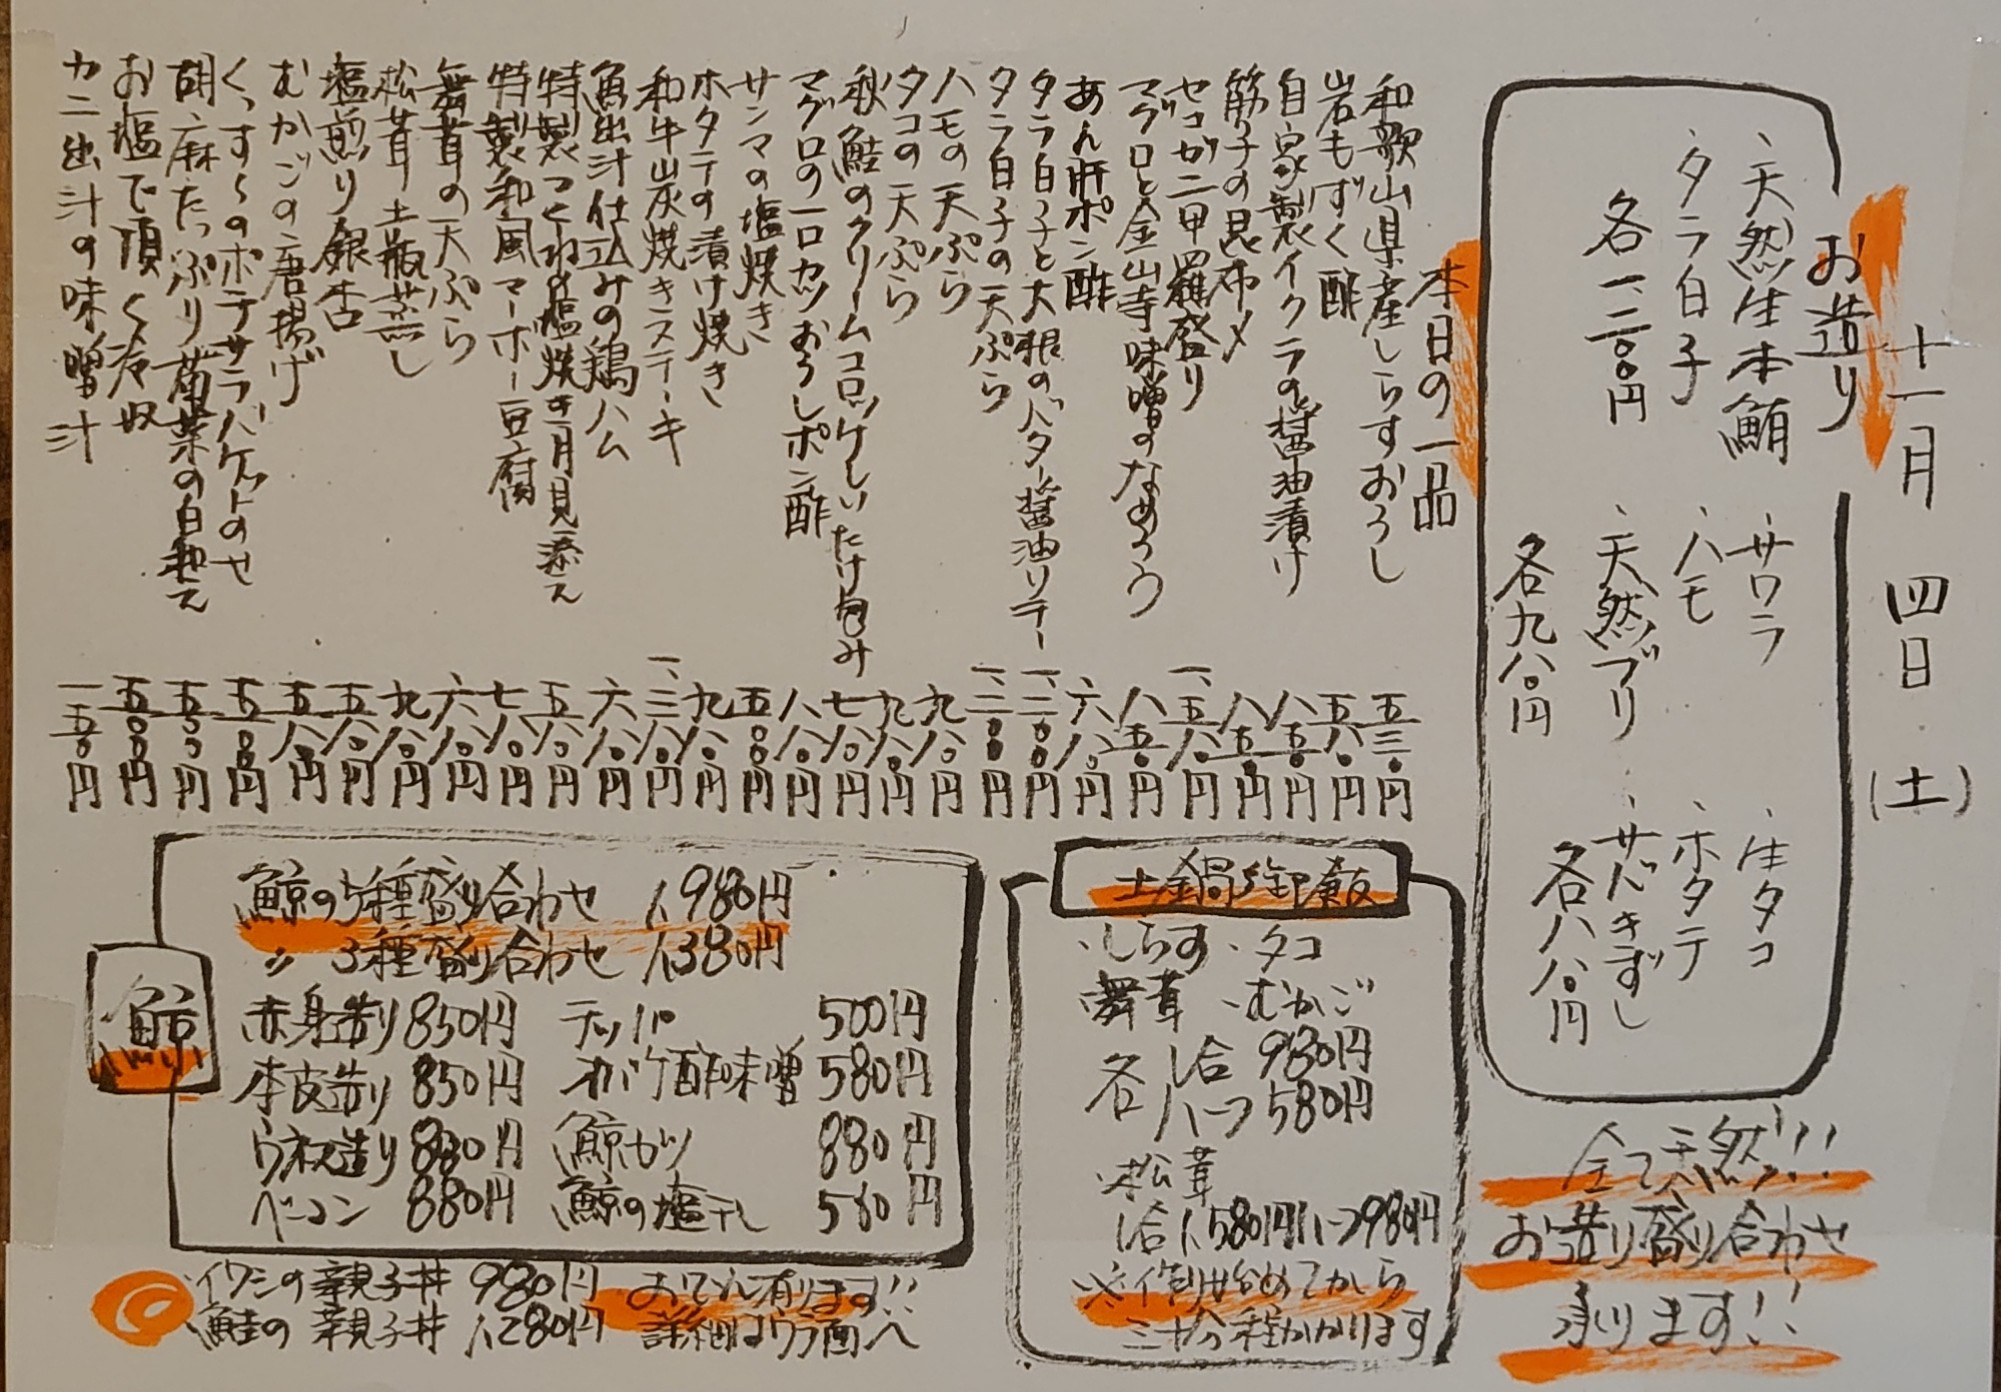 十一月 四日 (土)
お造り
、天然生本鮪 、サワラ 、生タコ
、タラ白子 、ハモ 、ホタテ
各一二〇〇円 、天然ブリ 、サバきずし
各九八〇円 各八八〇円
全て天然!!!
お造り盛り合わせ
承ります!!
本日の一品
和歌山県産しらすおろし 五三〇円
岩もずく酢 五八〇円
自家製イクラの醤油漬け 八五〇円
筋子の昆布〆 八五〇円
セコガニ甲羅盛り 一、五八〇円
マグロと金山寺味噌のなめろう 八五〇円
あん肝ポン酢 六八〇円
タラ白子と大根のバター醤油ソテー 一、二〇〇円
タラ白子の天ぷら 一、二〇〇円
ハモの天ぷら 九八〇円
タコの天ぷら 九八〇円
秋鮭のクリームコロッケしいたけ包み 七八〇円
マグロの一口カツおろしポン酢 八八〇円
サンマの塩焼き 五〇〇円
ホタテの漬け焼き 九八〇円
和牛炭焼きステーキ 一、三八〇円
魚出汁仕込みの鶏ハム 六八〇円
特製つくねの塩焼き月見添え 五八〇円
特製和風マーボー豆腐 七八〇円
舞茸の天ぷら 六八〇円
松茸土瓶蒸し 九八〇円
塩煎り銀杏 五八〇円
むかごの唐揚げ 五八〇円
くっすぅのポテサラバケットのせ 五五〇円
胡麻たっぷり菊菜の白和え 五五〇円
お塩で頂く冷奴 五〇〇円
カニ出汁の味噌汁 一五〇円
土鍋御飯
、しらす 、タコ
舞茸 、むかご
各 1合 980円
各 ハーフ 580円
、松茸
1合 1,580円 ハーフ 980円
※作り始めてから
三十分程かかります
鯨
鯨の5種盛り合わせ 1,980円
〃 3種盛り合わせ 1,380円
赤身造り 850円 テッパ 500円
本皮造り 850円 オバケ酢味噌 580円
ウネス造り 880円 鯨カツ 880円
ベーコン 880円 鯨の塩干し 580円
、イワシの親子丼 980円
、鮭の親子丼 1,280円
おでん有ります!!
詳細はウラ面へ